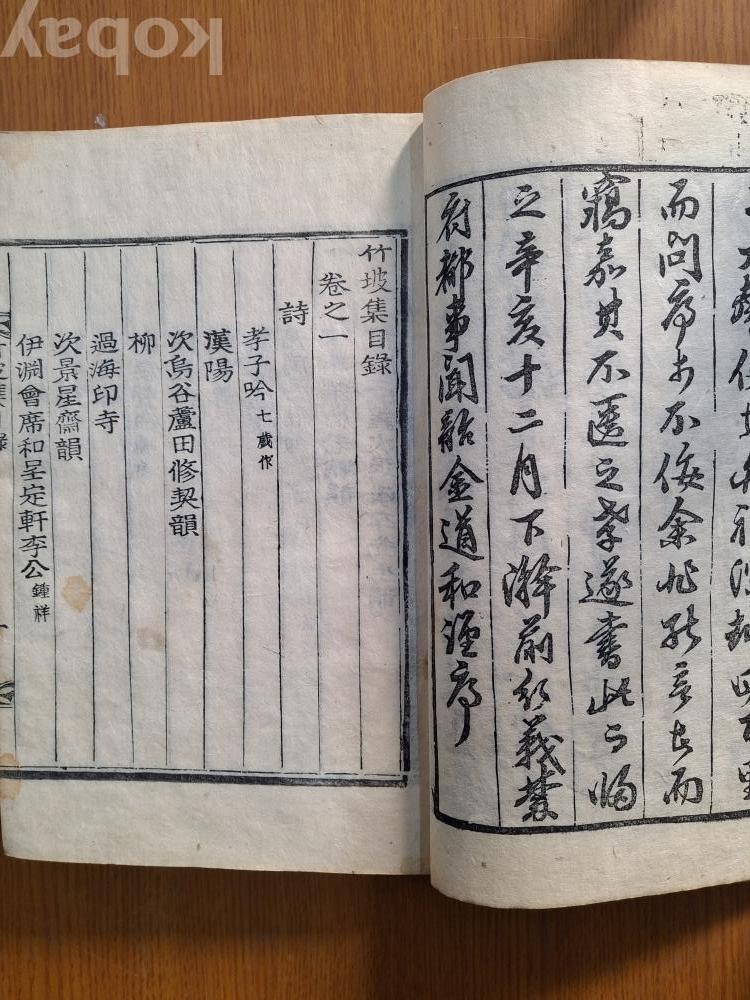 而問序於不佞余非能言者而
竊嘉其不匱之孝遂書此以歸
之辛亥十二月下澣前行義禁
府都事聞韶金道和謹序
竹坡集目錄
卷之一
詩
孝子吟 七歲作
漢陽
次鳥谷蘆田修契韻
柳
過海印寺
次景星齋韻
伊淵會席和呈定軒李公 鍾祥
kobay